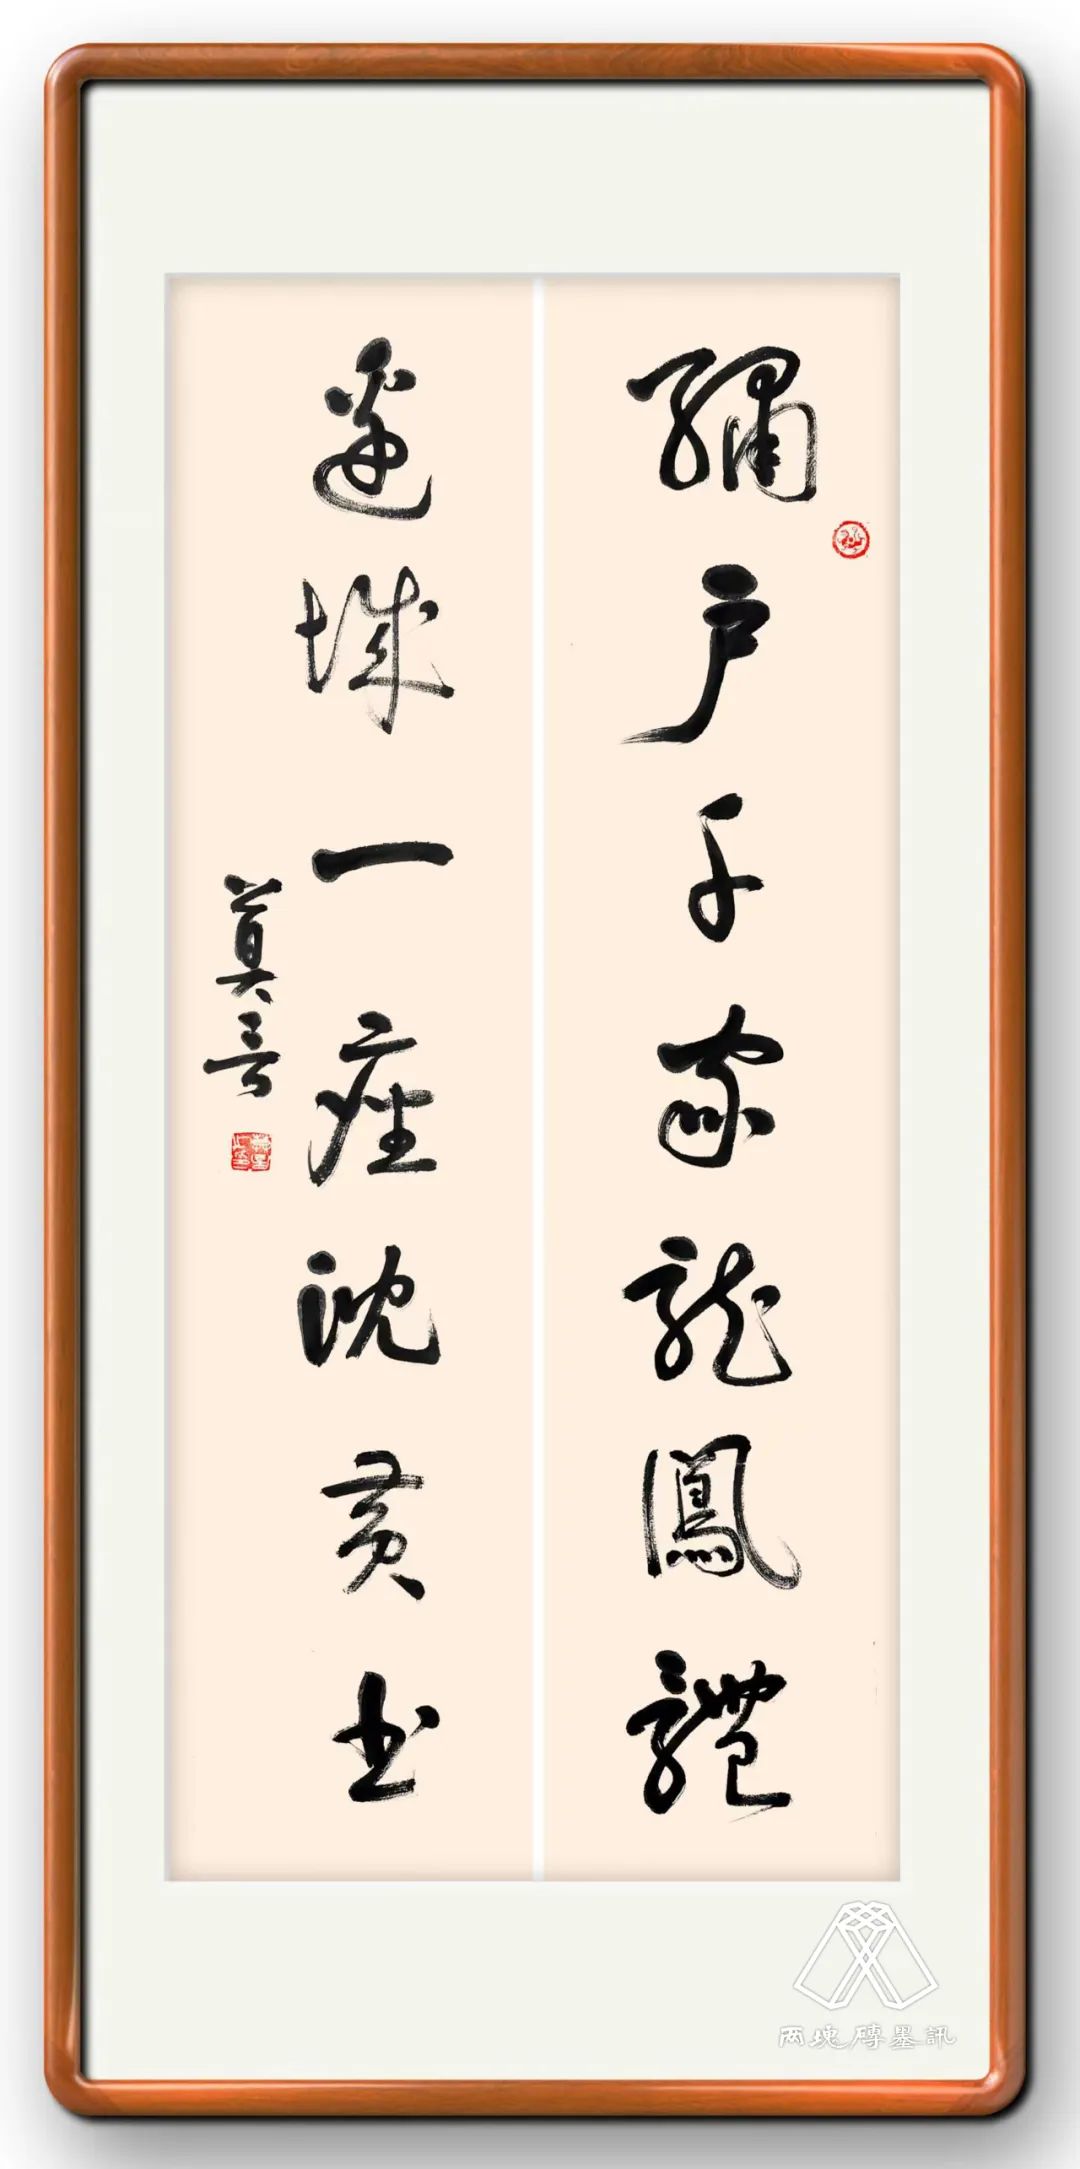 繡户千家龍鳳體
邊城一座沈黄书
莫言
两塊磚墨訊